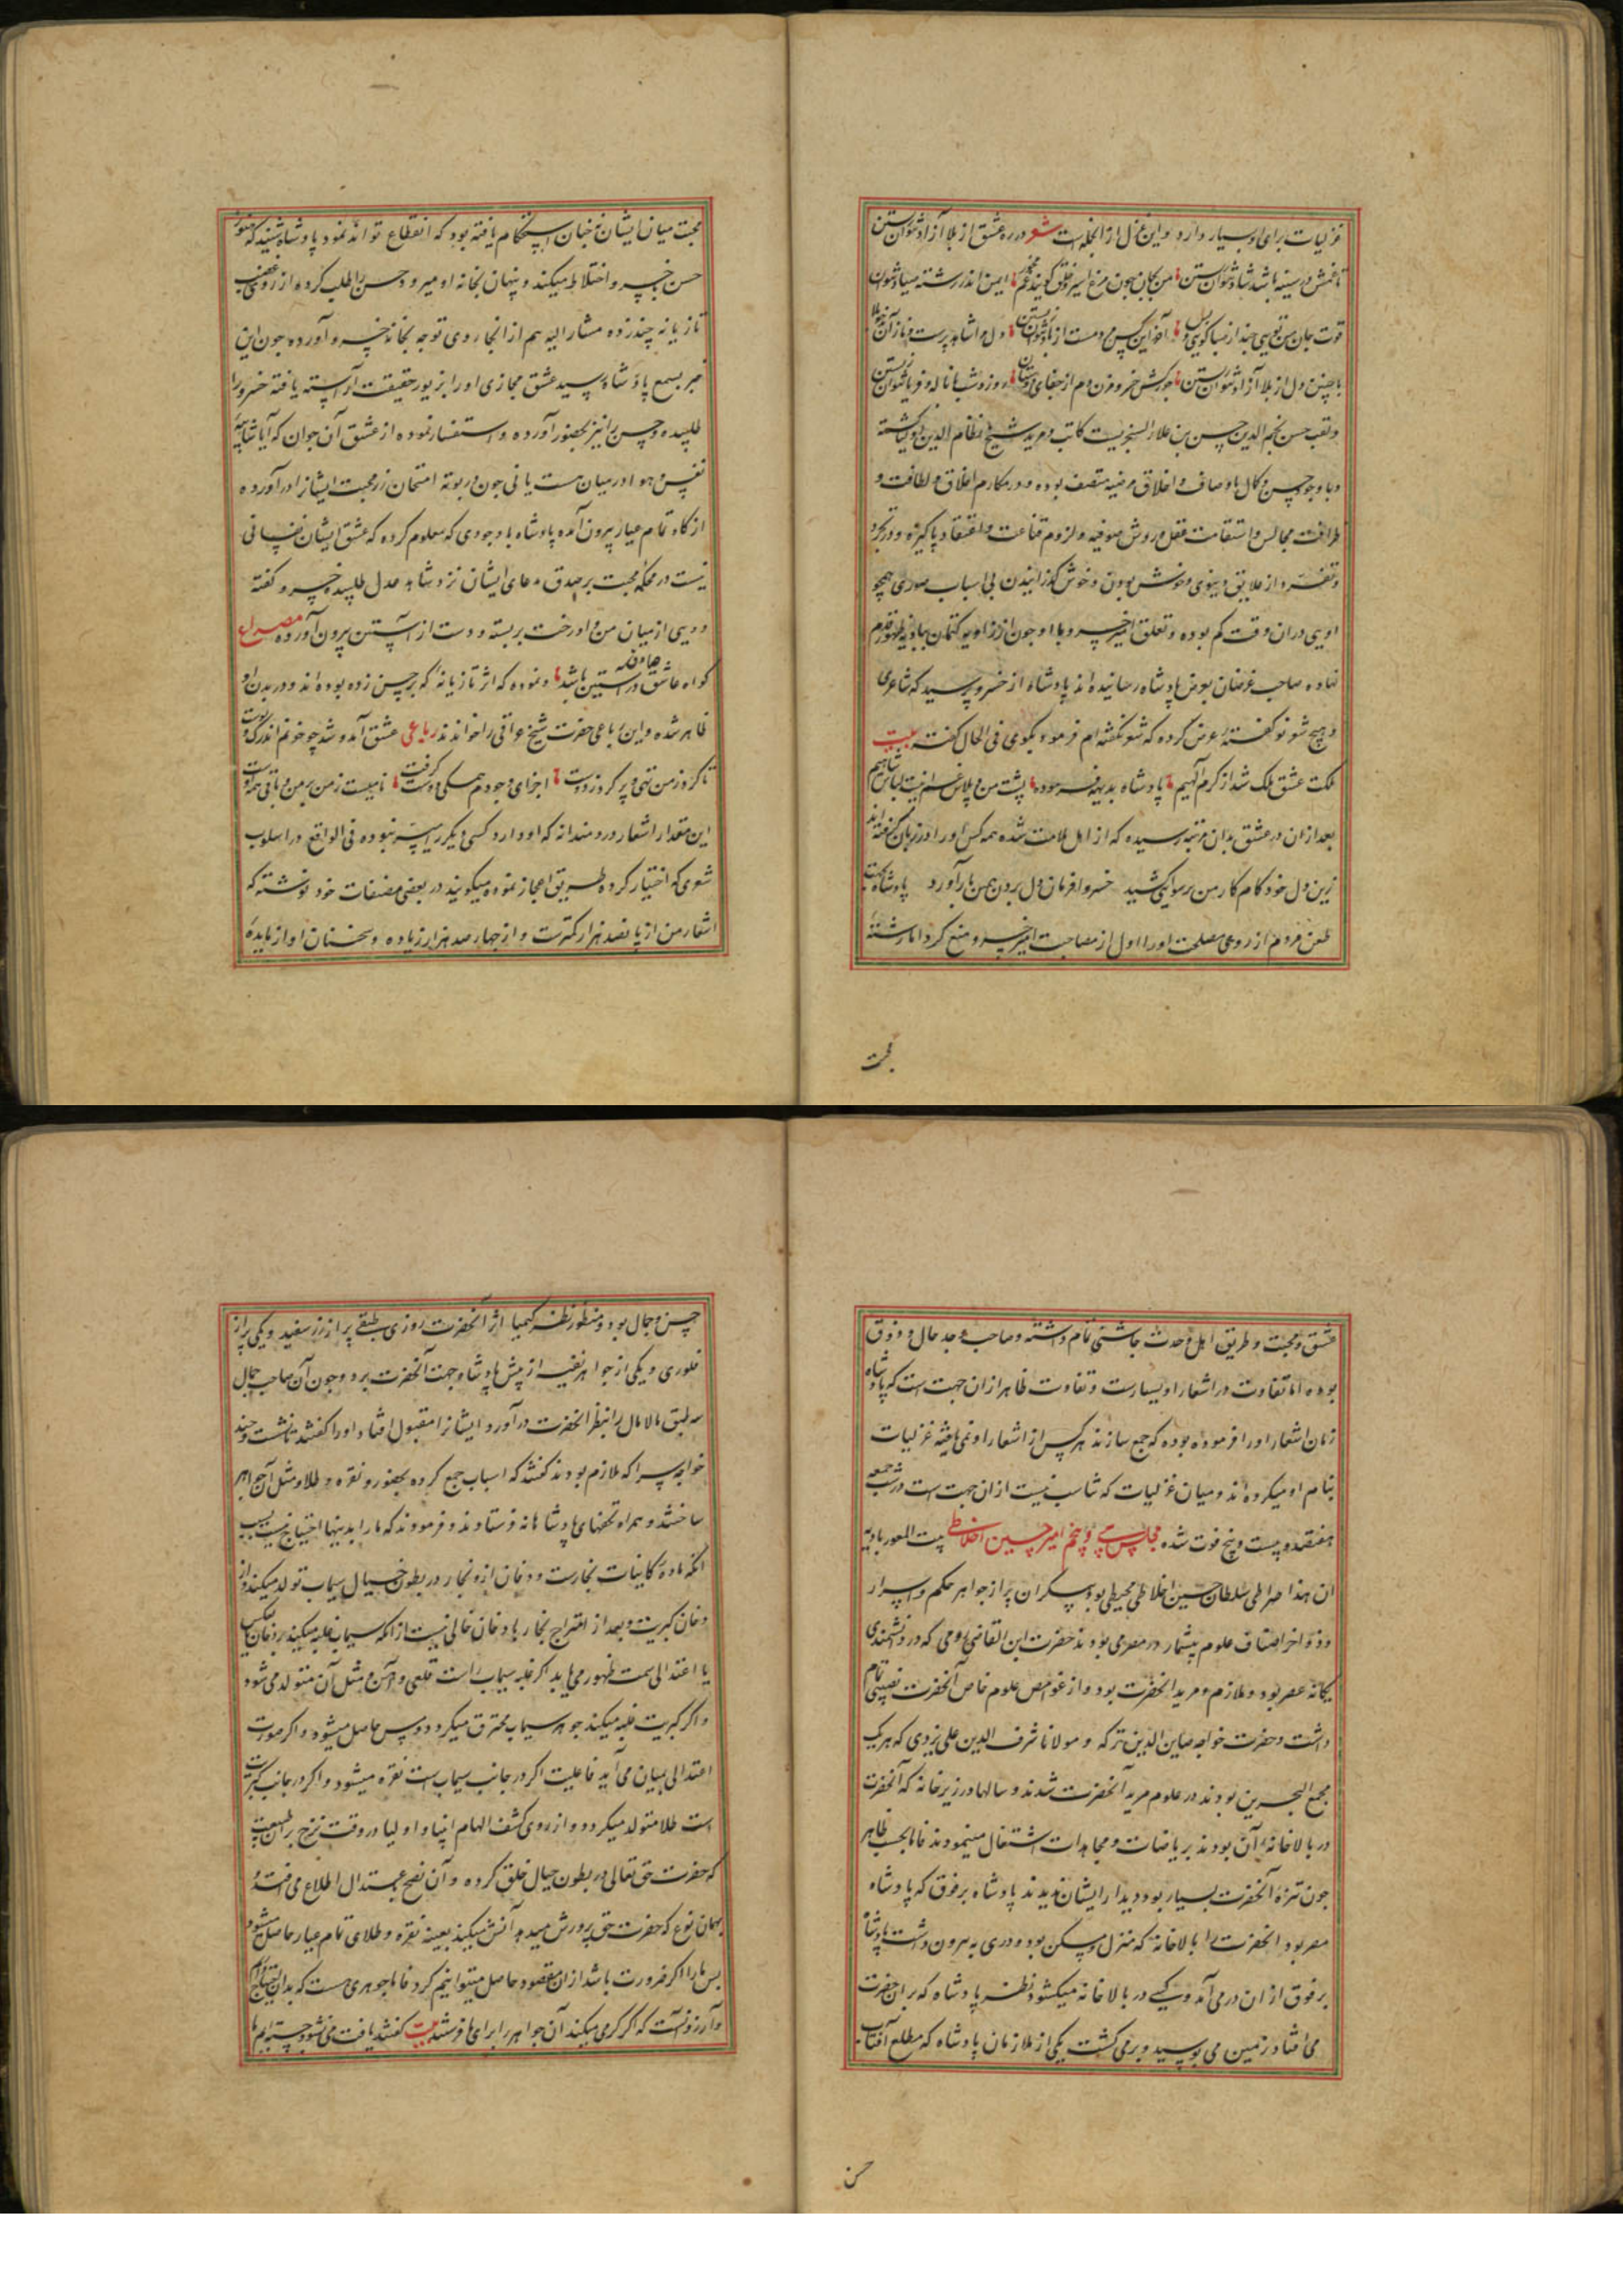 غزلیات برای او بسیار دارد و این غزل از انجمله است شعر در ره عشق از بلا آزاد نتوان زیستن
تا غمش در سینه باشد شاد نتوان زیستن من بجان بیچون مرغ اسیر و خلق گویند غم مخور ایمن اندر رشته صیاد نتوان
قوت جان من تویی چند از صبا بوی و آخر این کس مردمست از باد نتوان زیستن دل مرا شاهد پرست و باز آن
با چنین دل از بلا آزاد نتوان زیستن جور کش خسرو مزن دم از جفای دوستان روز و شب با ناله و فریاد نتوان زیستن
و لقب حسن نجم الدین حسن بن علاء السنجریست کاتب و مرید شیخ نظام الدین اولیا گشته
و با وجود حسن و کمال باوصاف و اخلاق مرضیه متصف بوده و در مکارم اخلاق و لطافت و
ظرافت مجالس و استقامت عقل و روش صوفیه و لزوم قناعت و اعتقاد پاکیزه و در تجرد
و تفرد از علایق دنیوی و خوش بودن و خوش گذرانیدن بی اسباب صوری همچو
اویی دران وقت کم بوده و تعلق امیر خسرو با او چون از زاویه کتمان ببادیه ظهور قدم
نهاده صاحب غرضان بعرض پادشاه رسانیده اند پادشاه از خسرو پرسید که شاعری
و هیچ شعر نو گفته عرض کرده که شعر نگفته ام فرمود بگوی فی الحال گفته بیت
ملکت عشق ملک شد از کرم الهیم پادشاه بدیهه فرموده پشت من و پلاس غم اینت لباس شاهیم
بعد ازان در عشق بدان مرتبه رسیده که از اهل ملامت شده همه کس او را در زبان گرفته اند
زین دل خود کام کار من برسوایی کشید خسروا فرمان دل بردن همین بار آورد پادشاه بجهت
طعن مردم از روی مصلحت او را اول از مصاحبت امیر خسرو منع کرد اما رشتهٔ
محبت
محبت میان ایشان نه چنان استحکام یافته بود که انقطاع تواند نمود پادشاه شنید که هنوز
حسن بخسرو اختلاط میکند و پنهان بخانه او میرود حسن را طلب کرده از روی غضب
تازیانه چند زده مشار الیه هم از انجا روی توجه بخانه خسرو آورده چون این
خبر بسمع پادشاه رسید عشق مجازی او را بزیور حقیقت آراسته یافته خسرو را
طلبیده و حسن را نیز بحضور آورده و استفسار نموده از عشق آن جوان که آیا شایبهٔ
نفس هوا در میان هست یا نی چون در بوته امتحان زر محبت ایشانرا در آورده
از گاه تمام عیار بیرون آمده پادشاه با وجودی که معلوم کرده که عشق ایشان نفسانی
نیست در محکمه محبت بر صدق مدعای ایشان نزد شاهد عدل طلبیده خسرو گفته
دویی از میان من و او رخت بر بسته و دست از آستین بیرون آورده مصراع
گواه عاشق صادق در آستین باشد و نموده که اثر تازیانه که بر حسن زده بوده اند و در بدن او
ظاهر شده و این رباعی حضرت شیخ عراقی را خوانده اند رباعی عشق آمد و شد چو خونم اندر رگ و پوست
تا کرد ز من تهی و پر کرد ز دوست اجزای وجودم همگی دوست گرفت نامیست ز من بر من و باقی همه اوست
این مقدار اشعار دردمندانه که او دارد کسی دیگر را میسر نبوده فی الواقع در اسلوب
شعری که اختیار کرده طریق اعجاز نموده میگویند در بعضی مصنفات خود نوشته که
اشعار من از پانصد هزار کمترست و از چهار صد هزار زیاده و سخنان او از مایدهٔ
عشق و محبت و طریق اهل وحدت چاشنی تمام داشته و صاحب وجد و حال و ذوق
بوده اما تفاوت در اشعار او بسیارست و تفاوت ظاهر ازان جهت است که پادشاه
زمان اشعار او را فرموده بوده که جمع سازند هر کس از اشعار او نمی یافته غزلیات
بنام او میکرده اند و میان غزلیات که تناسب نیست ازان جهت است در شب جمعه
هفتصد و بیست و پنج فوت شده مجلس سی و پنجم امیر حسین اخلاطی بیت المعمور بادیهٔ
ان هذا صراطی سلطان حسین اخلاطی محیطی بود بیکران پر از جواهر حکم و اسرار
و ذواخر اصناف علوم بیشمار در مصر می بودند حضرت ابن القاضی رومی که در دانشمندی
یگانه عصر بود و ملازم و مرید آنحضرت بود و از غوامض علوم خاص آنحضرت نصیبی تمام
داشت و حضرت خواجه صاین الدین ترکه و مولانا شرف الدین علی یزدی که هر یک
مجمع البحرین بودند در علوم مرید آنحضرت شدند و سالها در زیر خانه که آنحضرت
در بالا خانهٔ آن بودند بریاضات و مجاهدات اشتغال مینمودند فاما بحسب ظاهر
چون تنزه آنحضرت بسیار بود دیدار ایشان ندیدند پادشاه برقوق که پادشاه
مصر بود آنحضرت را بالا خانه که منزل و مسکن بود و دری به بیرون داشت پادشاه
برقوق از ان در می آمد و یکی در بالا خانه میگشود نظر پادشاه که بر ان حضرت
می افتاد زمین می بوسید و بر می گشت یکی از ملازمان پادشاه که مطلع آفتاب
حسن
حسن و جمال بود و منظور نظر کیمیا اثر آنحضرت روزی طبقی پر از زر سفید و یکی پر از
فلوری و یکی از جواهر نفیسه از پیش پادشاه جهت آنحضرت برد و چون آن صاحب جمال
سه طبق مالامال را بنظر آنحضرت در آورد ایشانرا مقبول افتاد او را گفتند تا نشست و چند
خواجه سرا که ملازم بودند گفتند که اسباب جمع کرده بحضور و نقره و طلا و مثل آن جواهر
ساختند و همراه تحفهای پادشاهانه فرستادند و فرمودند که ما را بدینها احتیاج نیست بسبب
آنکه مادهٔ کاینات بخارست و دخان ازو بخار در بطون جبال سیماب تولد میکند و از
دخان کبریت و بعد از امتزاج بخار با دخان خالی نیست از آنکه سیماب غلبه میکند بر دخان یا بعکس
یا اعتدالی سمت ظهور می یابد اگر غلبه سیماب راست قلعی و آهن و مثل آن متولد می شود
و اگر کبریت غلبه میکند جوهر سیماب محترق میگردد و مس حاصل میشود و اگر صورت
اعتدالی بمیان می آید فاعلیت اگر در جانب سیماب است نقره میشود و اگر در جانب کبریت
است طلا متولد میگردد و از روی کشف الهام انبیا و اولیا در وقت
که حضرت حق تعالی در بطون جبال خلق کرده و آن نضج و اعتدال اطلاع می افتد
بهمان نوع که حضرت حق پرورش میدهد آتش میکند بعینه نقره و طلای تمام عیار حاصل میشود
پس ما را اگر ضرورت باشد ازان مقصود حاصل میتوانیم کرد فاما جوهری هست که بدان احتیاج داریم
و آرزو آنست که اگر کرمی میکند آن جواهر را برای ما فرستد بیت گفتند یافت می نشود جسته ایم ما